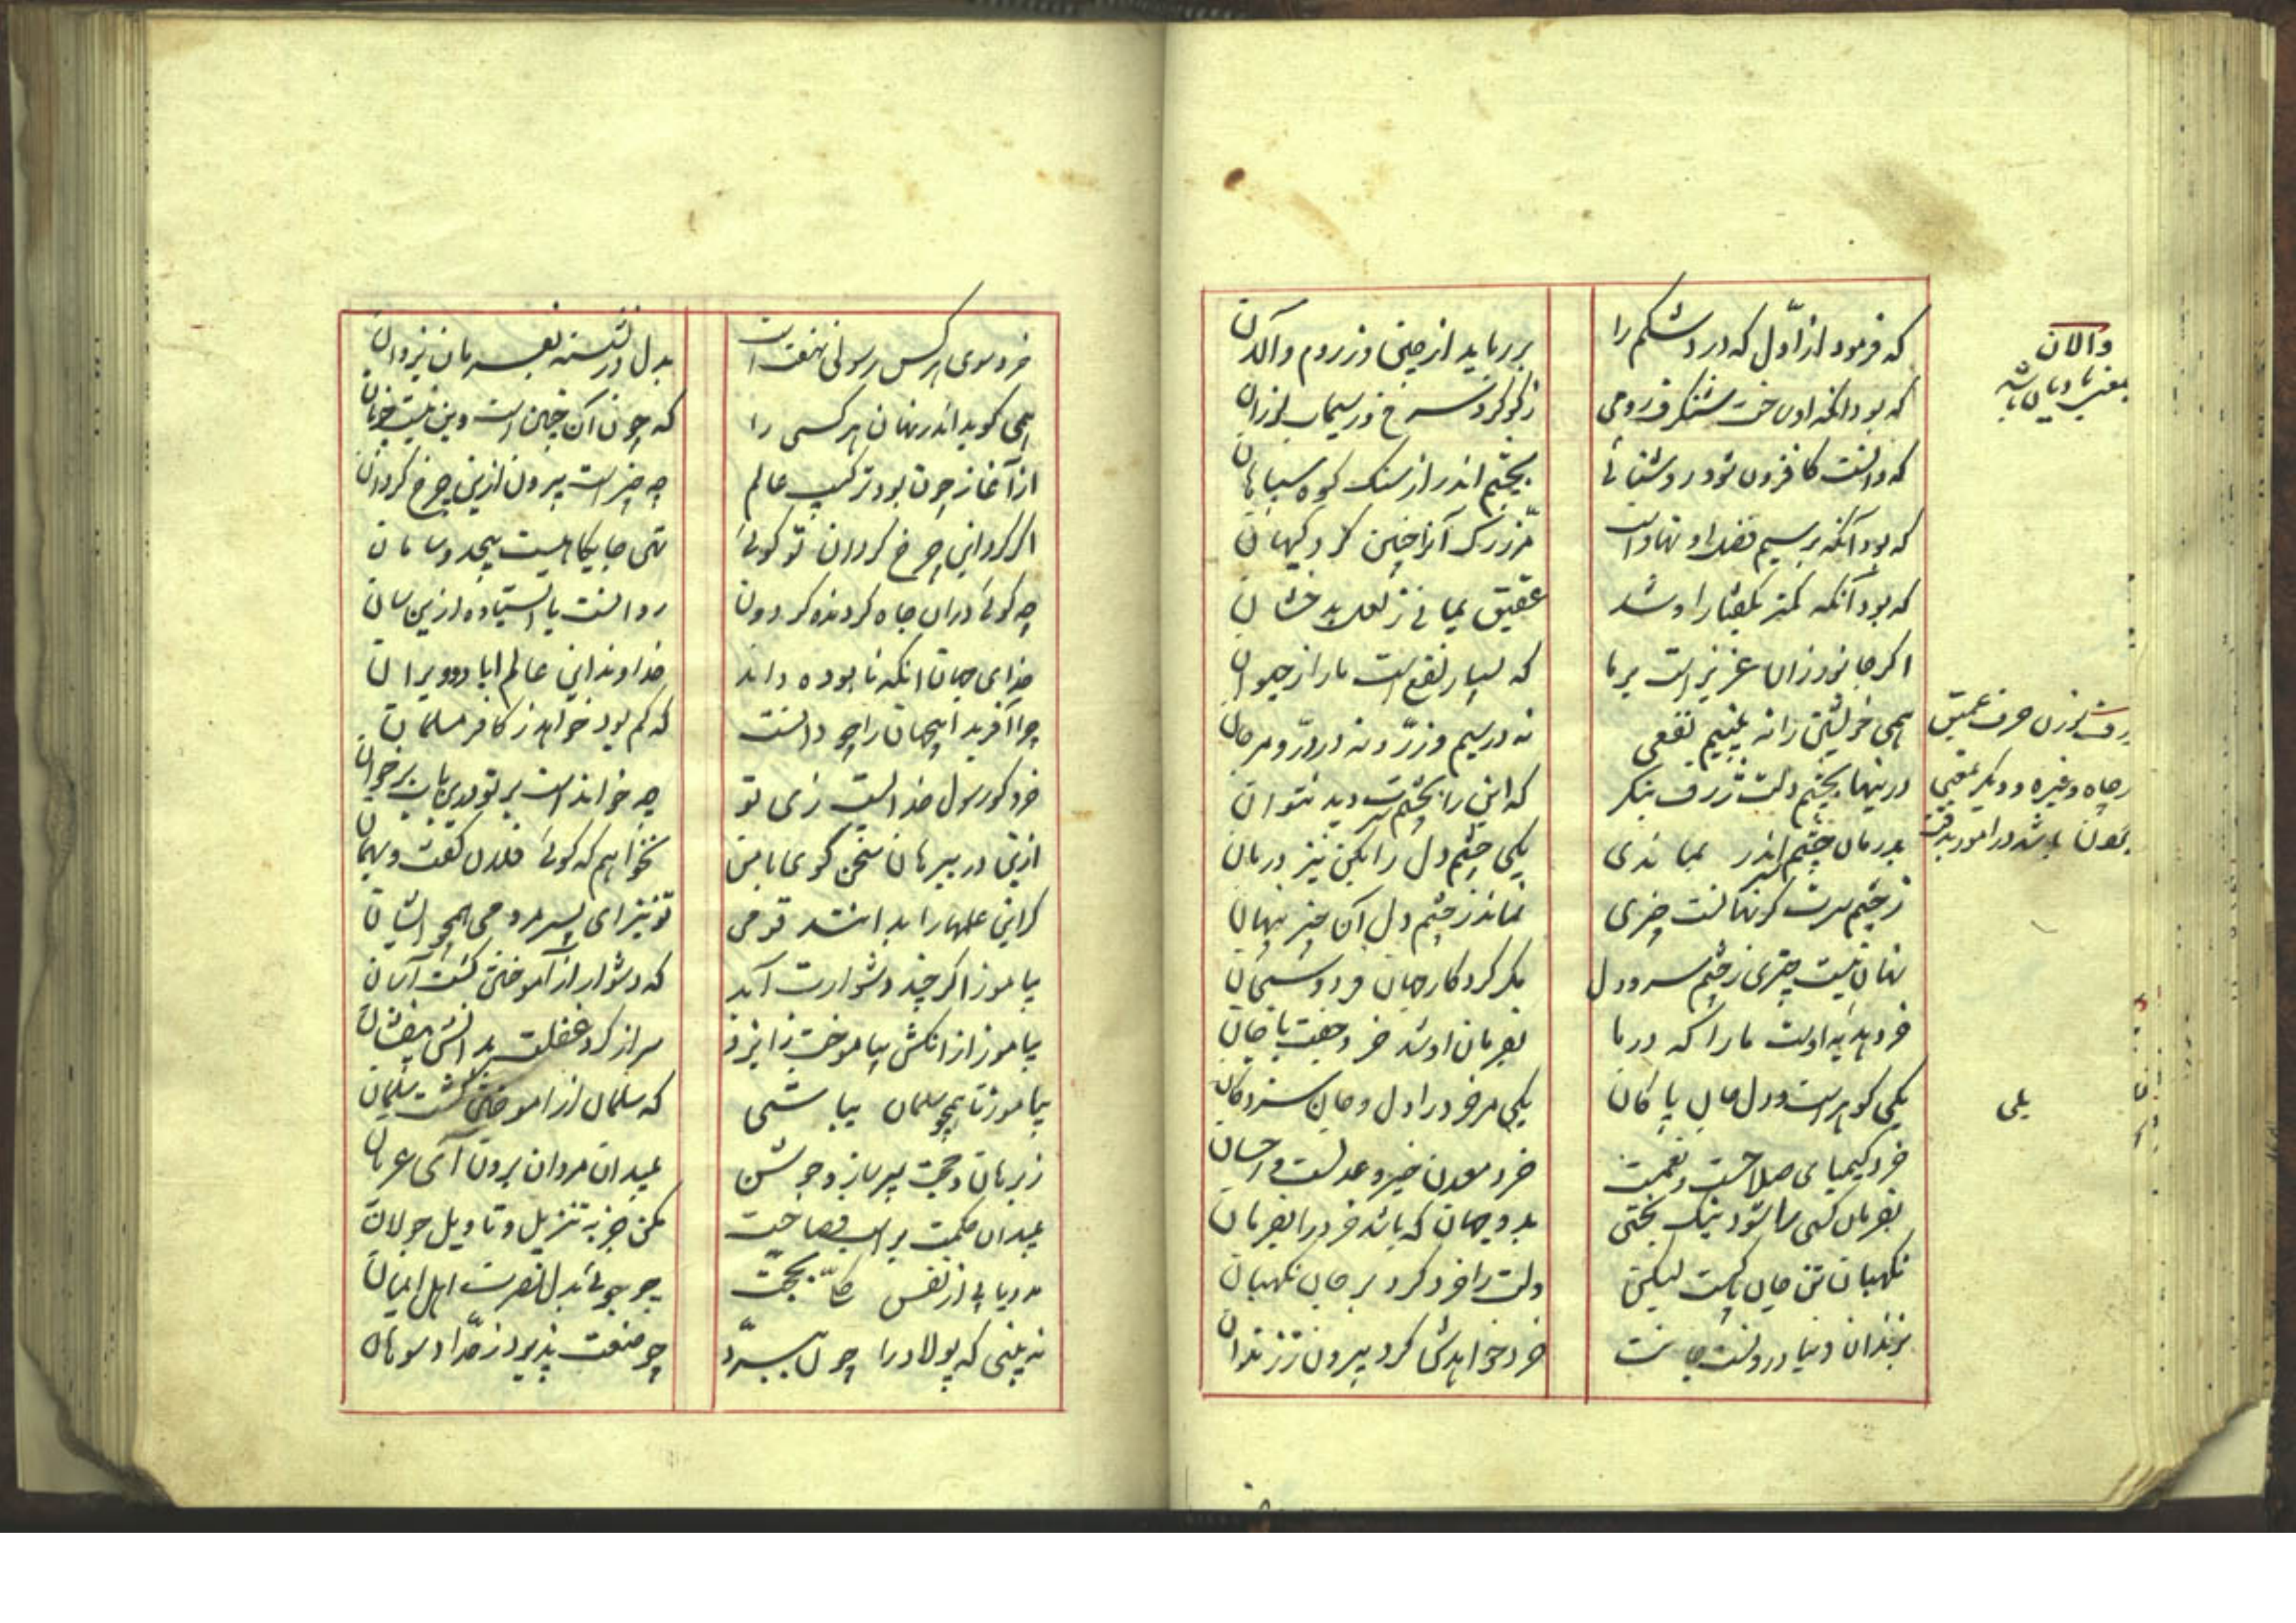 که فرمود از اوّل که درد شکم را
برر باید از چینی و ز روم والان
که بود انکه او ساخت شنکرف رومی
ز کوکرد سرخ و ز سیماب لرزان
که دانست کافزون شود روشنائی
بچشم اندر از سنک کوه سپاهان
که بود آنکه بر سیم فضل او نهاد است
مر زر را چنین کرد کیهان
که بود آنکه کمتر بگفتار او شد
عقیق یمانی ز لعل بدخشان
اکر جانور زان عزیز است بر ما
که بسیار نفع است مارا ز حیوان
همی خویشتن را نه بینیم نفعی
نه در سیم و زرّ و نه در درّ و مرجان
درینها بچشم دلت ژرف بنکر
که این را بچشم سرت دید نتوان
بدرمان چشم اندر بماندی
یکی چشم دل را بکن نیز درمان
ز چشم سرت کر نهانست چیزی
نماند ز چشم دل آن چیز پنهان
نهان نیست چیزی ز چشم سر و دل
مکر کردکار جهان فرد و سبحان
خرد هدیه اوست ما را که در ما
بفرمان او شد خرد جفت با جان
یکی کوهر است و دل جان پاکان
یکی مر خرد را دل و جان سزد کان
خرد کیمیای صلاحست و نعمت
خرد معدن خیر و عدلست و احسان
بفرمان کسی را شود نیک بختی
بدو جهان که باشد خرد را بفرمان
نکهبان تن جان پاکست لیکن
دلت را خرد کرد بر جان نکهبان
بزندان دنیا درونست جانت
خرد خواهدش کرد بیرون ز زندان
والان
بمعنی بادیان باشد
ژرف بوزن حرف عمیق
چاه و غیره و دیکر بمعنی
باشد در امور بدقت
یلی
خرد سوی هر کس رسولی نهفته است
بدل در نشسته بفرمان یزدان
همی کوید اندر نهان هر کسی را
که چون آن چنین است و این نیست چونان
از آغاز چون بود ترکیب عالم
چه چیز است بیرون ازین چرخ کردان
اکر کرد این چرخ کردان تو کوئی
تهی جایکاهیست بیحد و سامان
چه کوئی در ان جاه کردنده کردون
روانست یا ایستاده ازین سان
خدای جهان انکه نابوده داند
خداوند این عالم اباد و ویران
چرا آفرید این جهان را چو دانست
که کم بود خواهد ز کافر مسلمان
خرد کو رسول خدایست زی تو
چه خوانده است بر تو بدین باب بر خوان
ازین در ببرهان سخن کوی با من
نخواهم که کوئی فلان کفت و بهمان
کر این علمها را بدانند قومی
تو نیز ای پسر مردمی همچو ایشان
بیاموز اکر چند دشوارت آید
که دشوار از آموختن کشت آسان
بیاموز از انکش بیاموخت ایزد
سر از کرد غفلت بدانش بیفشان
بیاموز تا همچو سلمان بباشی
که سلمان از اموختن کشت سلمان
ز برهان و حجت سپر ساز و جوشن
بمیدان مردان برون آی عریان
بمیدان حکمت بر اسب فصاحت
مکن جز به تنزیل و تاویل جولان
مدد یابی از نفس کلّ بحجّت
چو جوئی بدل نصرت اهل ایمان
نه بینی که پولاد را چون ببرّد
چو صنعت پذیرد ز حدّاد سوهان